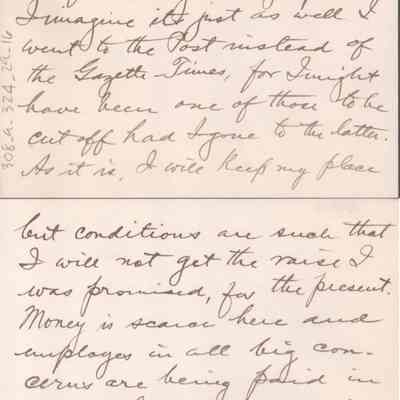 I imagine it's just as well I
went to the Post instead of
the Gazette-Times, for I might
have been one of those to be
cut off had I gone to the latter.
As it is, I will keep my place
but conditions are such that
I will not get the raise I
was promised, for the present.
Money is scarce here and
employes in all big con-
cerns are being paid in
308-a-324-29-16